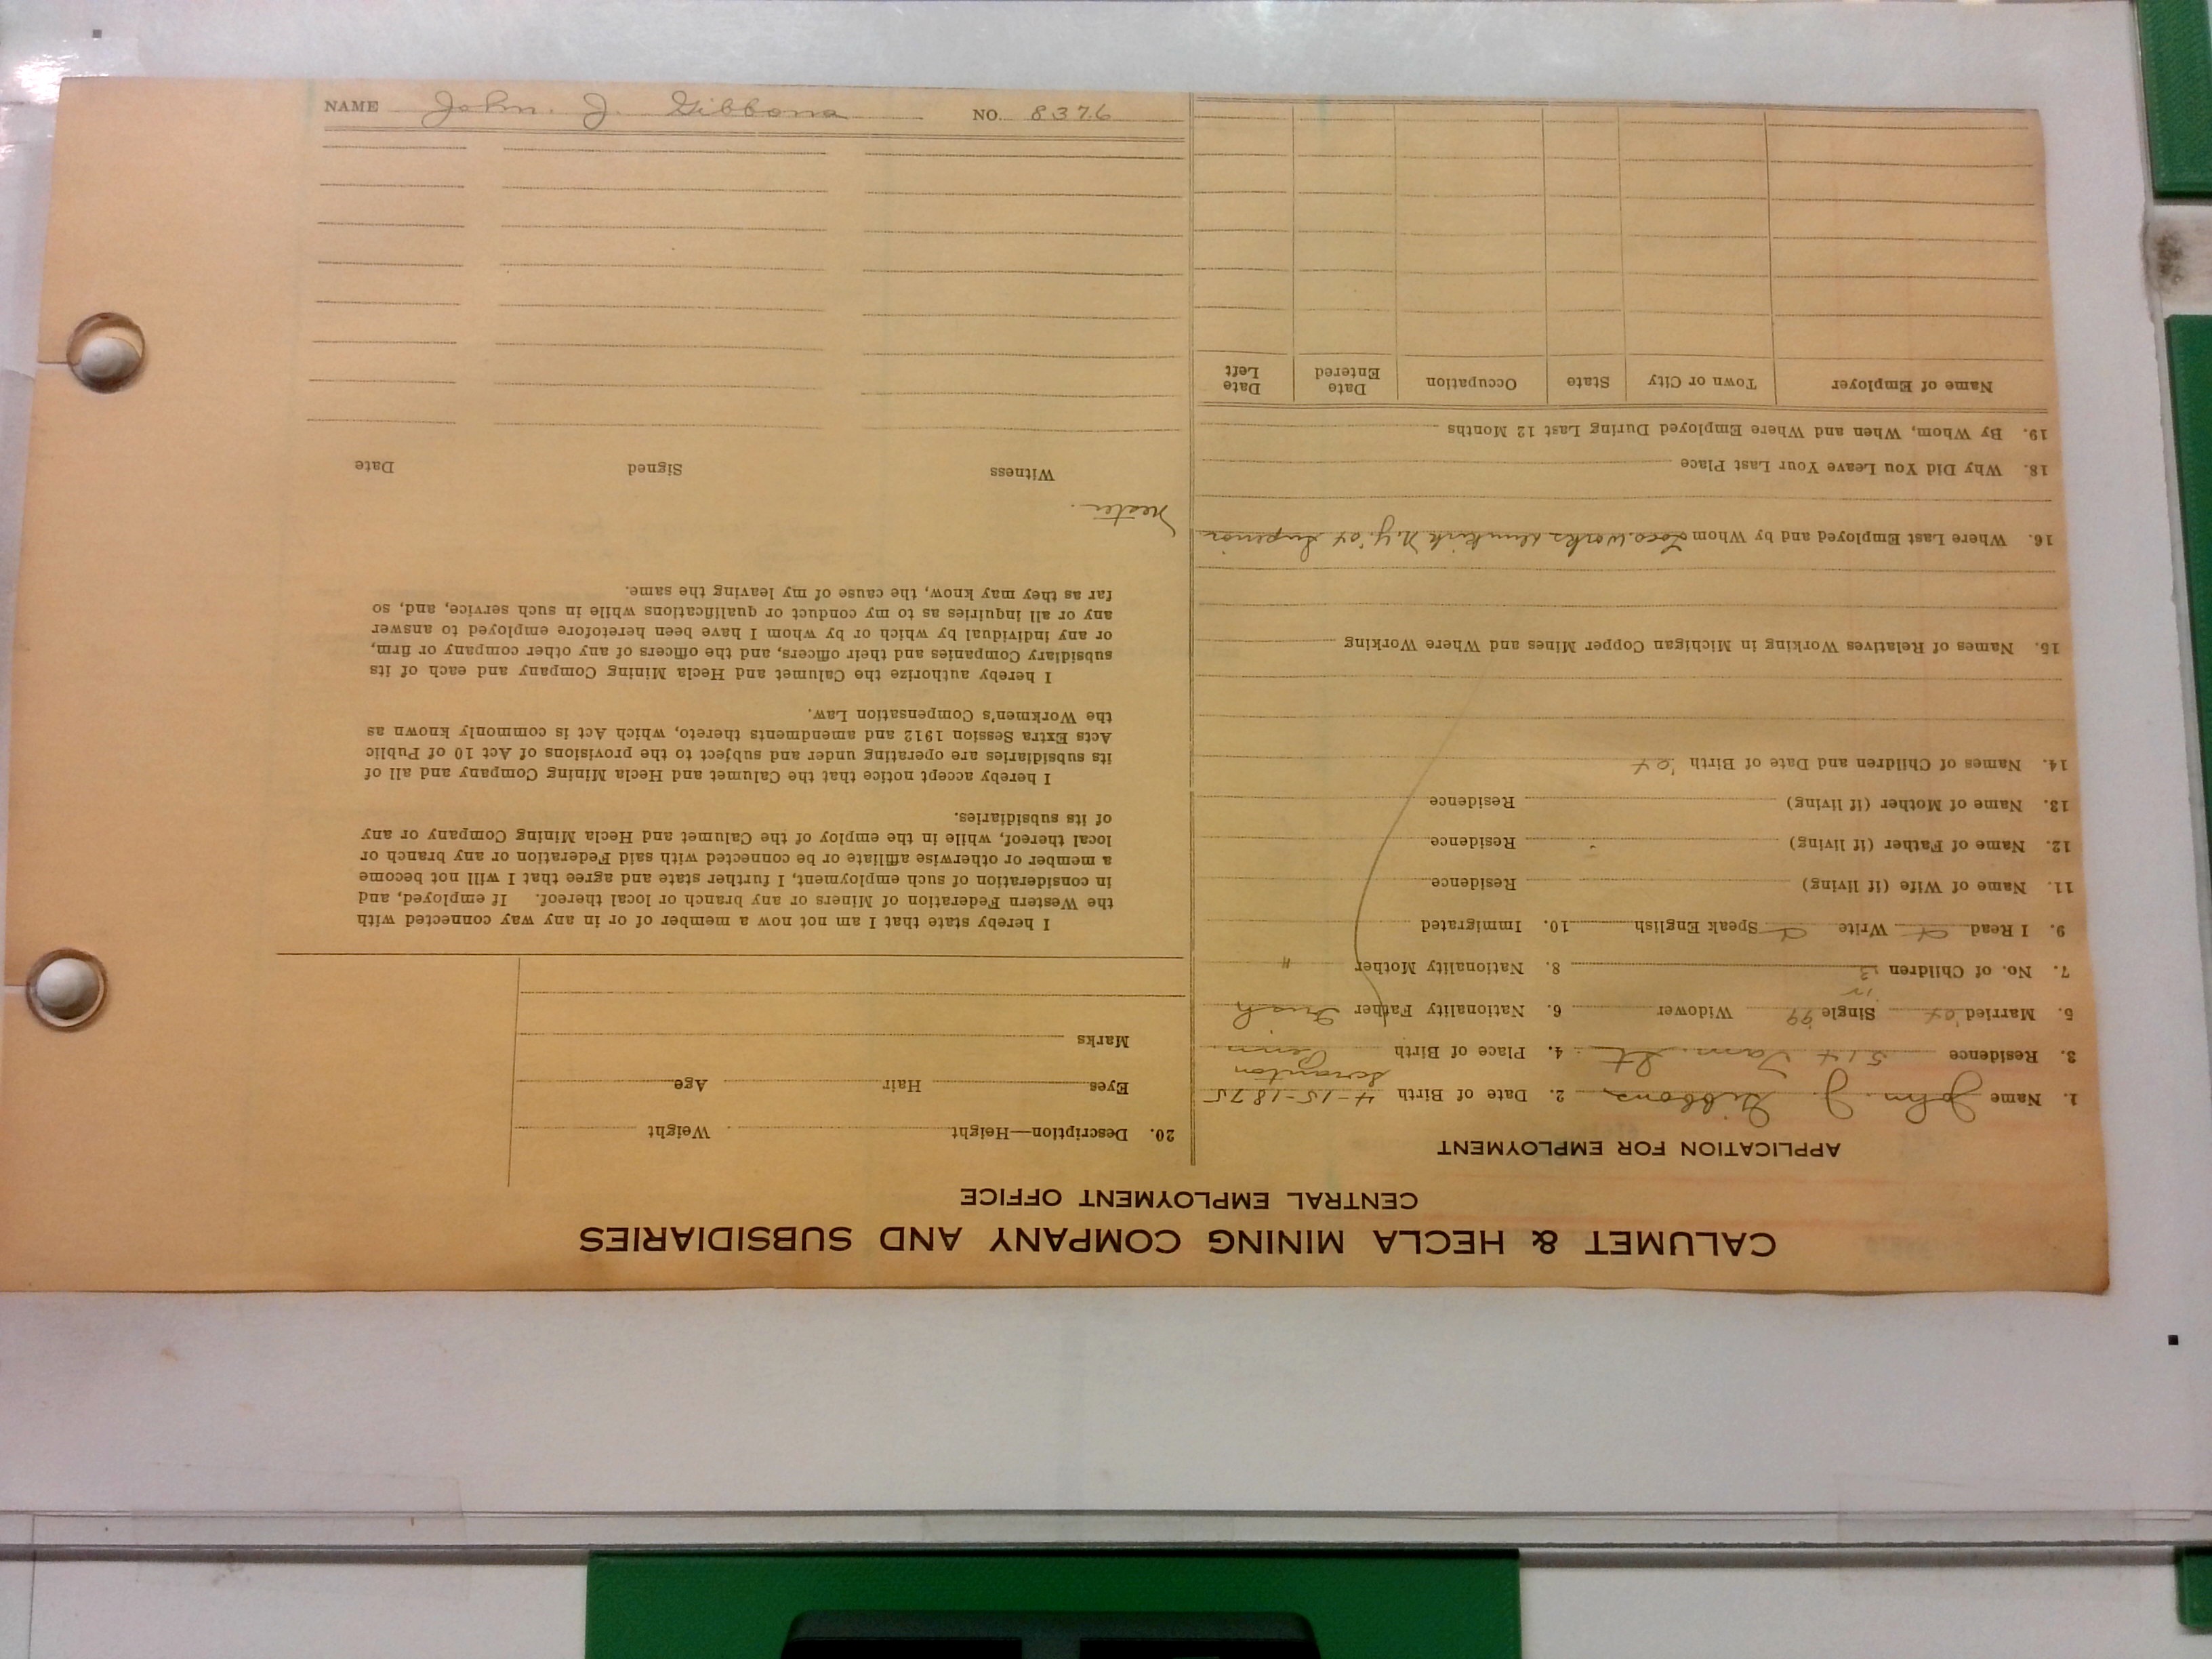 CALUMET & HECLA MINING COMPANY AND SUBSIDIARIES
CENTRAL EMPLOYMENT OFFICE
APPLICATION FOR EMPLOYMENT
1. Name John. J. Gibbons 2. Date of Birth 4-15-1875
Scranton
3. Residence 514 Tam. St 4. Place of Birth Penn.
5. Married Single 99 Widower 6. Nationality Father Irish
7. No. of Children 3 8. Nationality Mother "
9. I Read Write Speak English 10. Immigrated
11. Name of Wife (if living) Residence
12. Name of Father (if living) Residence
13. Name of Mother (if living) Residence
14. Names of Children and Date of Birth
15. Names of Relatives Working in Michigan Copper Mines and Where Working
16. Where Last Employed and by Whom Loco. Works Dunkirk N.Y. Superior
18. Why Did You Leave Your Last Place
19. By Whom, When and Where Employed During Last 12 Months
Name of Employer Town or City State Occupation Date Entered Date Left
20. Description—Height Weight
Eyes Hair Age
Marks
I hereby state that I am not now a member of or in any way connected with
the Western Federation of Miners or any branch or local thereof. If employed, and
in consideration of such employment, I further state and agree that I will not become
a member or otherwise affiliate or be connected with said Federation or any branch or
local thereof, while in the employ of the Calumet and Hecla Mining Company or any
of its subsidiaries.
I hereby accept notice that the Calumet and Hecla Mining Company and all of
its subsidiaries are operating under and subject to the provisions of Act 10 of Public
Acts Extra Session 1912 and amendments thereto, which Act is commonly known as
the Workmen's Compensation Law.
I hereby authorize the Calumet and Hecla Mining Company and each of its
subsidiary Companies and their officers, and the officers of any other company or firm,
or any individual by which or by whom I have been heretofore employed to answer
any or all inquiries as to my conduct or qualifications while in such service, and, so
far as they may know, the cause of my leaving the same.
Witness Signed Date
NAME John. J. Gibbons NO. 8376